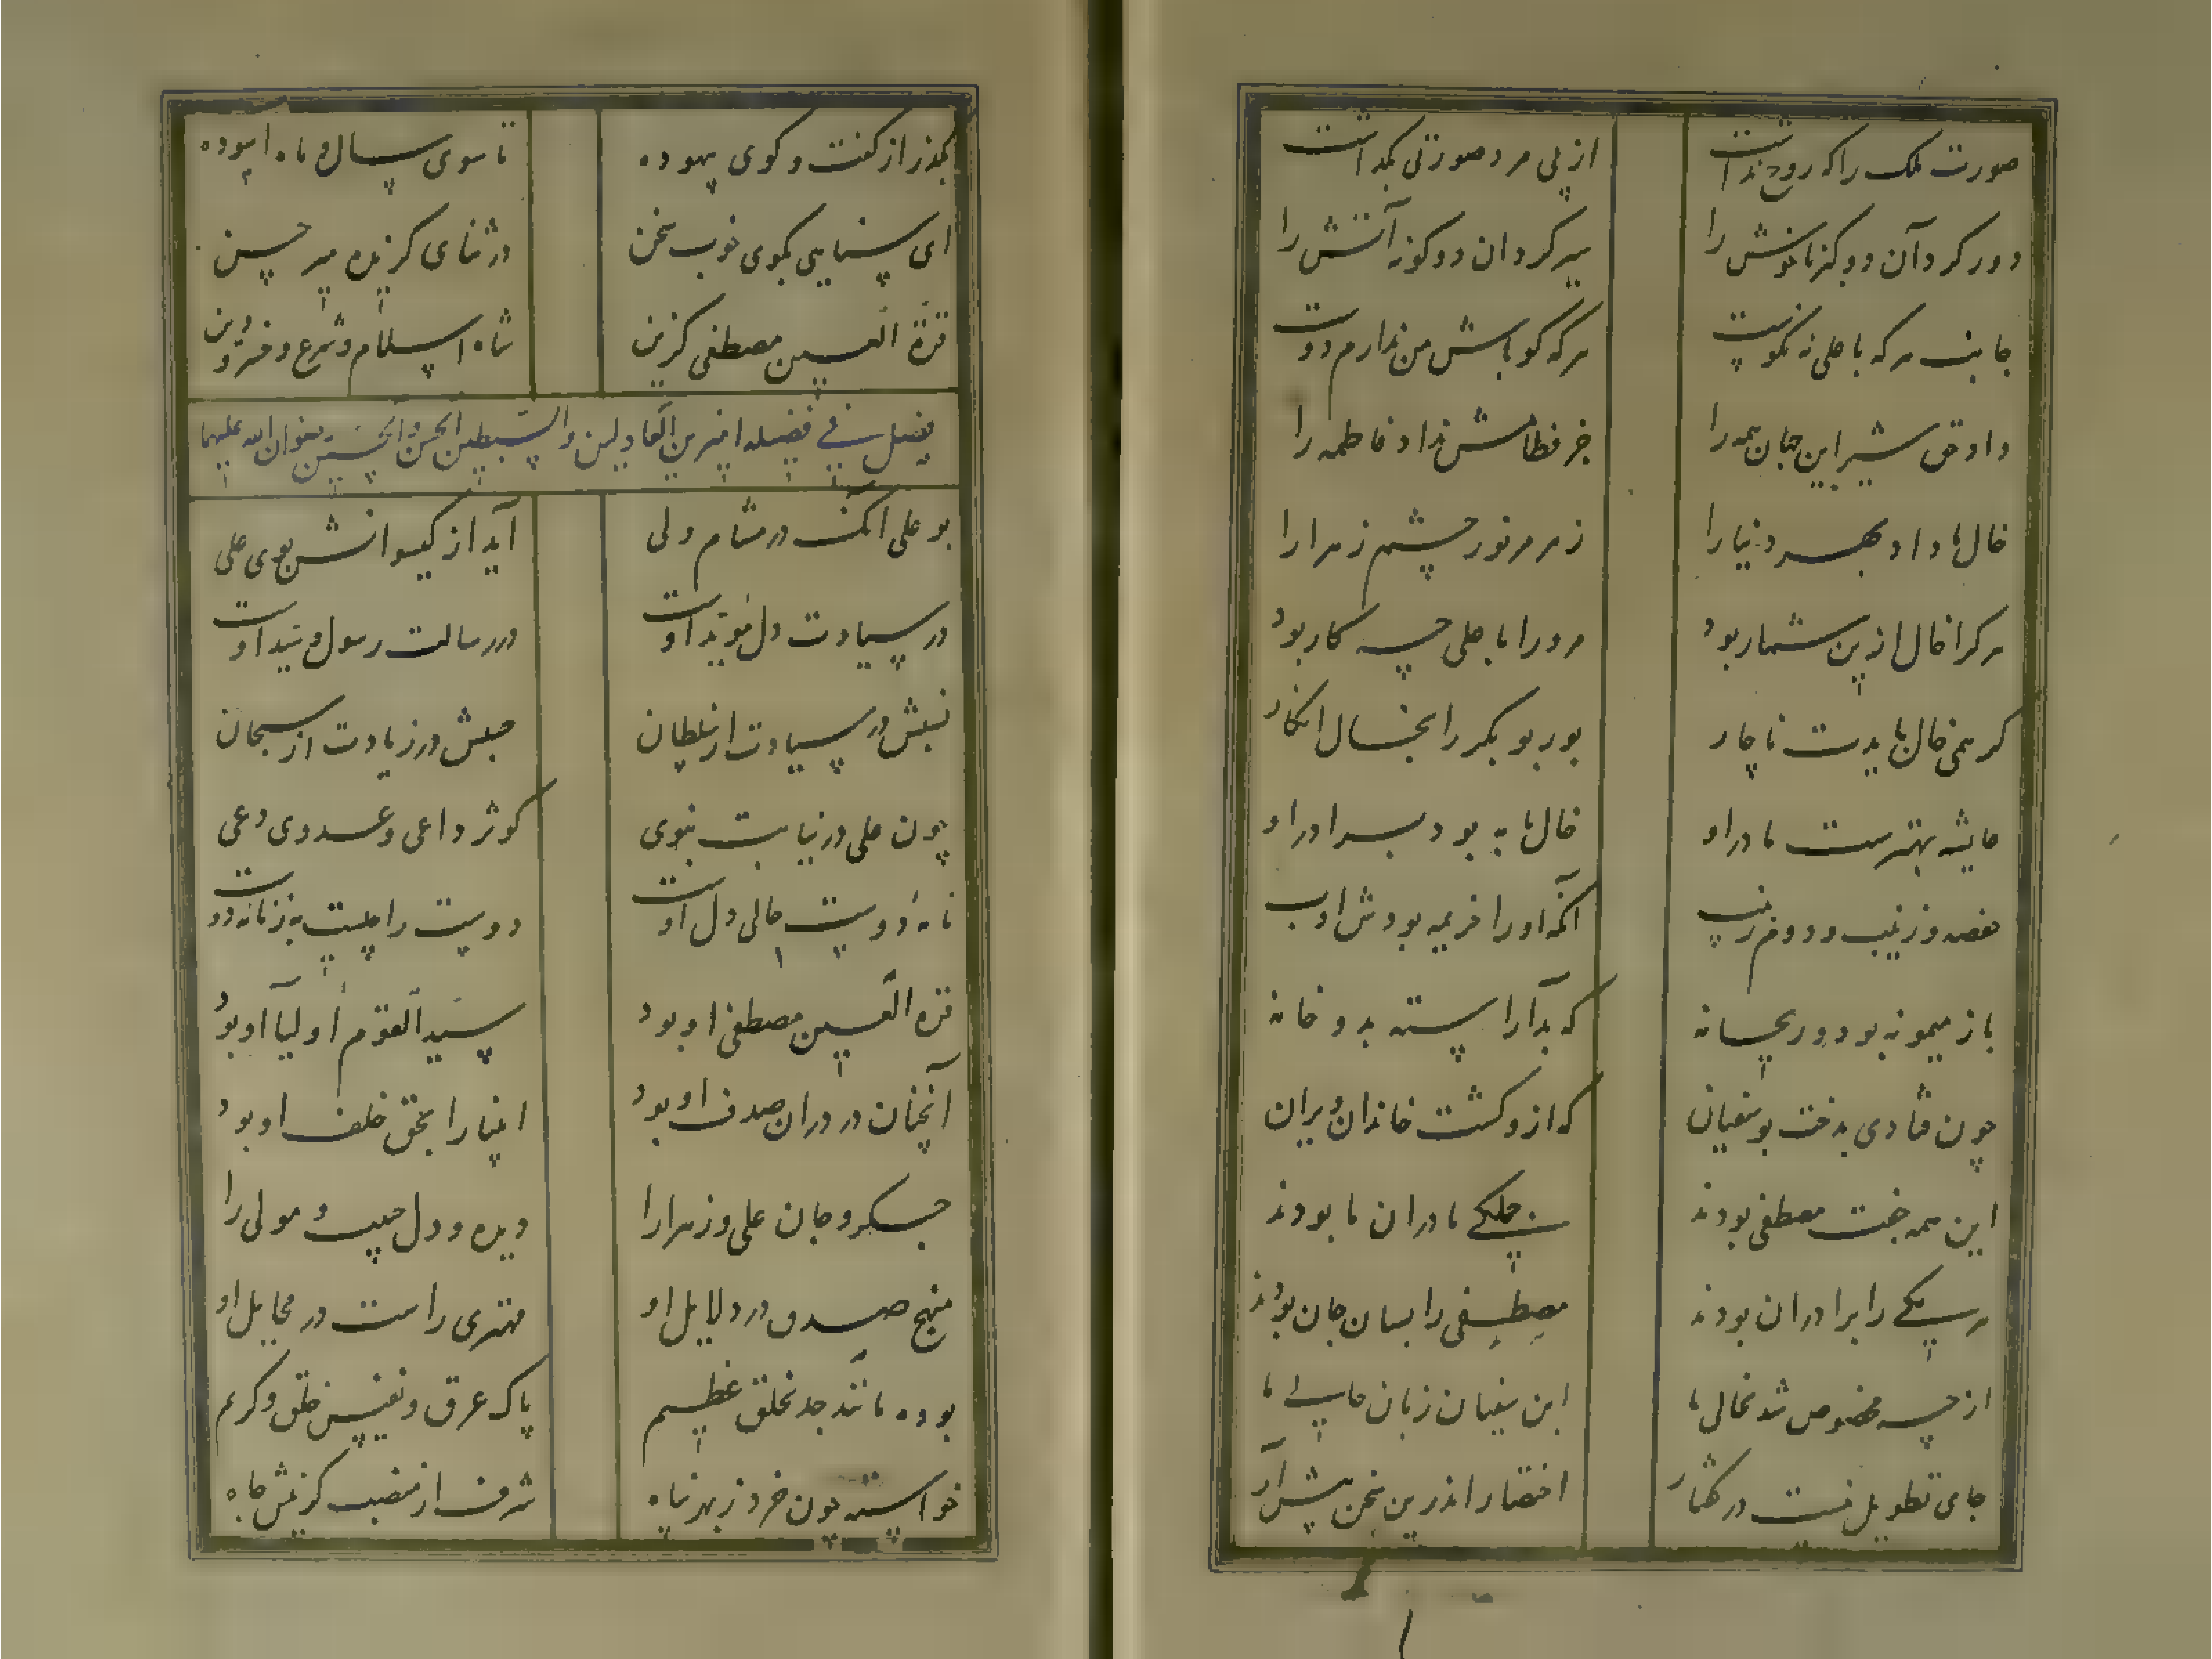 صورت ملک را که روح نداشت از پی مرد صورتی بگذاشت
دور کرد آن دو گنده ناخوش را میر کرد آن دو گونه آتش را
جانب هر که با علی نه نکوست هر که گو باش من ندارم دوست
داد حق شیر این جهان همه را جز فطامش نداد فاطمه را
خال ما داد بهر دنیا را زهر مر نور چشم زهرا را
هر کرا خال ازین شمار بود مر ورا با علی چه کار بود
گر همی خال بایدت ناچار پور بوبکر را بخال انگار
عایشه بهترست مادر او خال ما به بود برادر او
حفصه و زینب و دوم زینب آنکه او را خزیمه بودش اب
باز میمونه بود و ریحانه که بد آراسته بدو خانه
چون فتادی بدخت بوسفیانی که ازو گشت خاندان ویران
این همه جفت مصطفی بودند نه همگی مادران ما بودند
هر یکی را برادران بودند مصطفی را بسان جان بودند
از چه مخصوص شد بخالی ما ابن سفیان زیان حالی ما
جای تطویل نیست در گفتار اختصار اندرین سخن پیش آر
بگذر از گفت و گوی بیهوده تا سوی سال و ماه آسوده
ای سنایی بگوی خوب سخن در ثنای گزیده میر حسن
قرة العین مصطفی گزین شاه اسلام و شرع و خسرو دین
فصل فی فضیلة امیر بن و السبطین الحسن والحسین رضوان الله علیهما
بو علی آنکه در مشام ولی آید از گیسوانش بوی علی
در سیادت دل مؤید اوست در رسالت رسول و سید اوست
نسبش در سیادت از سلطان حسبش در زیادت از سبحان
چون علی در نیابت نبوی کوثر داعی و عدوی دعی
نامه دوست حالی دل اوست دوست را چیست به ز نامه دوست
قرة العین مصطفی او بود سید القوم اولیا او بود
آنچنان در در آن صدف او بود انبیا را بحق خلف او بود
جگر و جان علی و زهرا را دیده و دل حبیب و مولی را
منهج صدق در دلایل او مهتری راست در مخایل او
بوده مانند جد بخلق عظیم پاک عرق و نفیس خلق و کریم
خواسته چون خرد ز بهر پناه شرف از منصب گزینش جاه